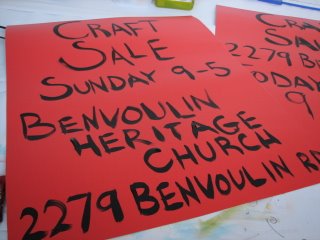 CRAFT
SALE
SUNDAY 9-5
BENVOULIN
HERITAGE
CHURCH
2279 BENVOULIN RD
CRA
SA
2279 BE
ODAY
9